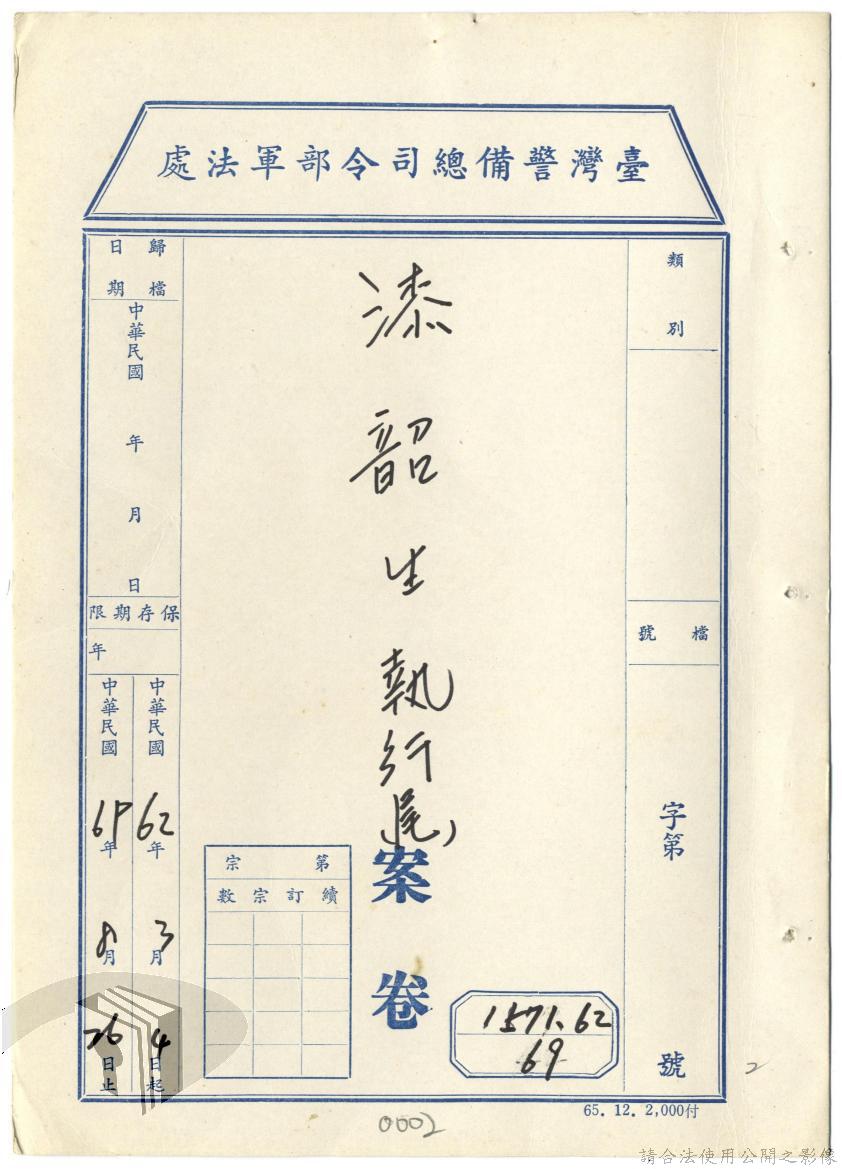 臺灣警備總司令部軍法處
類別
檔號
字第
號
漆韶生執行
案卷
第宗
續訂宗數
1571.62
69
歸檔日期
中華民國
年
月
日
保存期限
年
中華民國62年3月4日起
中華民國69年8月26日止
65. 12. 2,000付
0002
2
請合法使用公開之影像